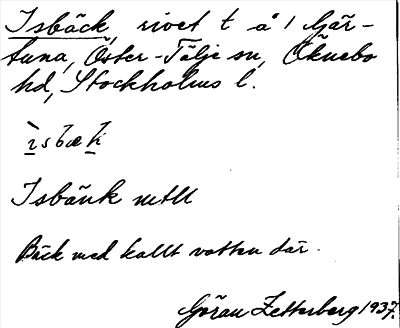 Isbäck, rivet t å / Gär-
tuna, Öster-Tälje sn, Öknebo
hd, Stockholms l.
ìsbæk
Isbänk mtll
Bäck med kallt vatten där.
Göran Zetterberg 1937.